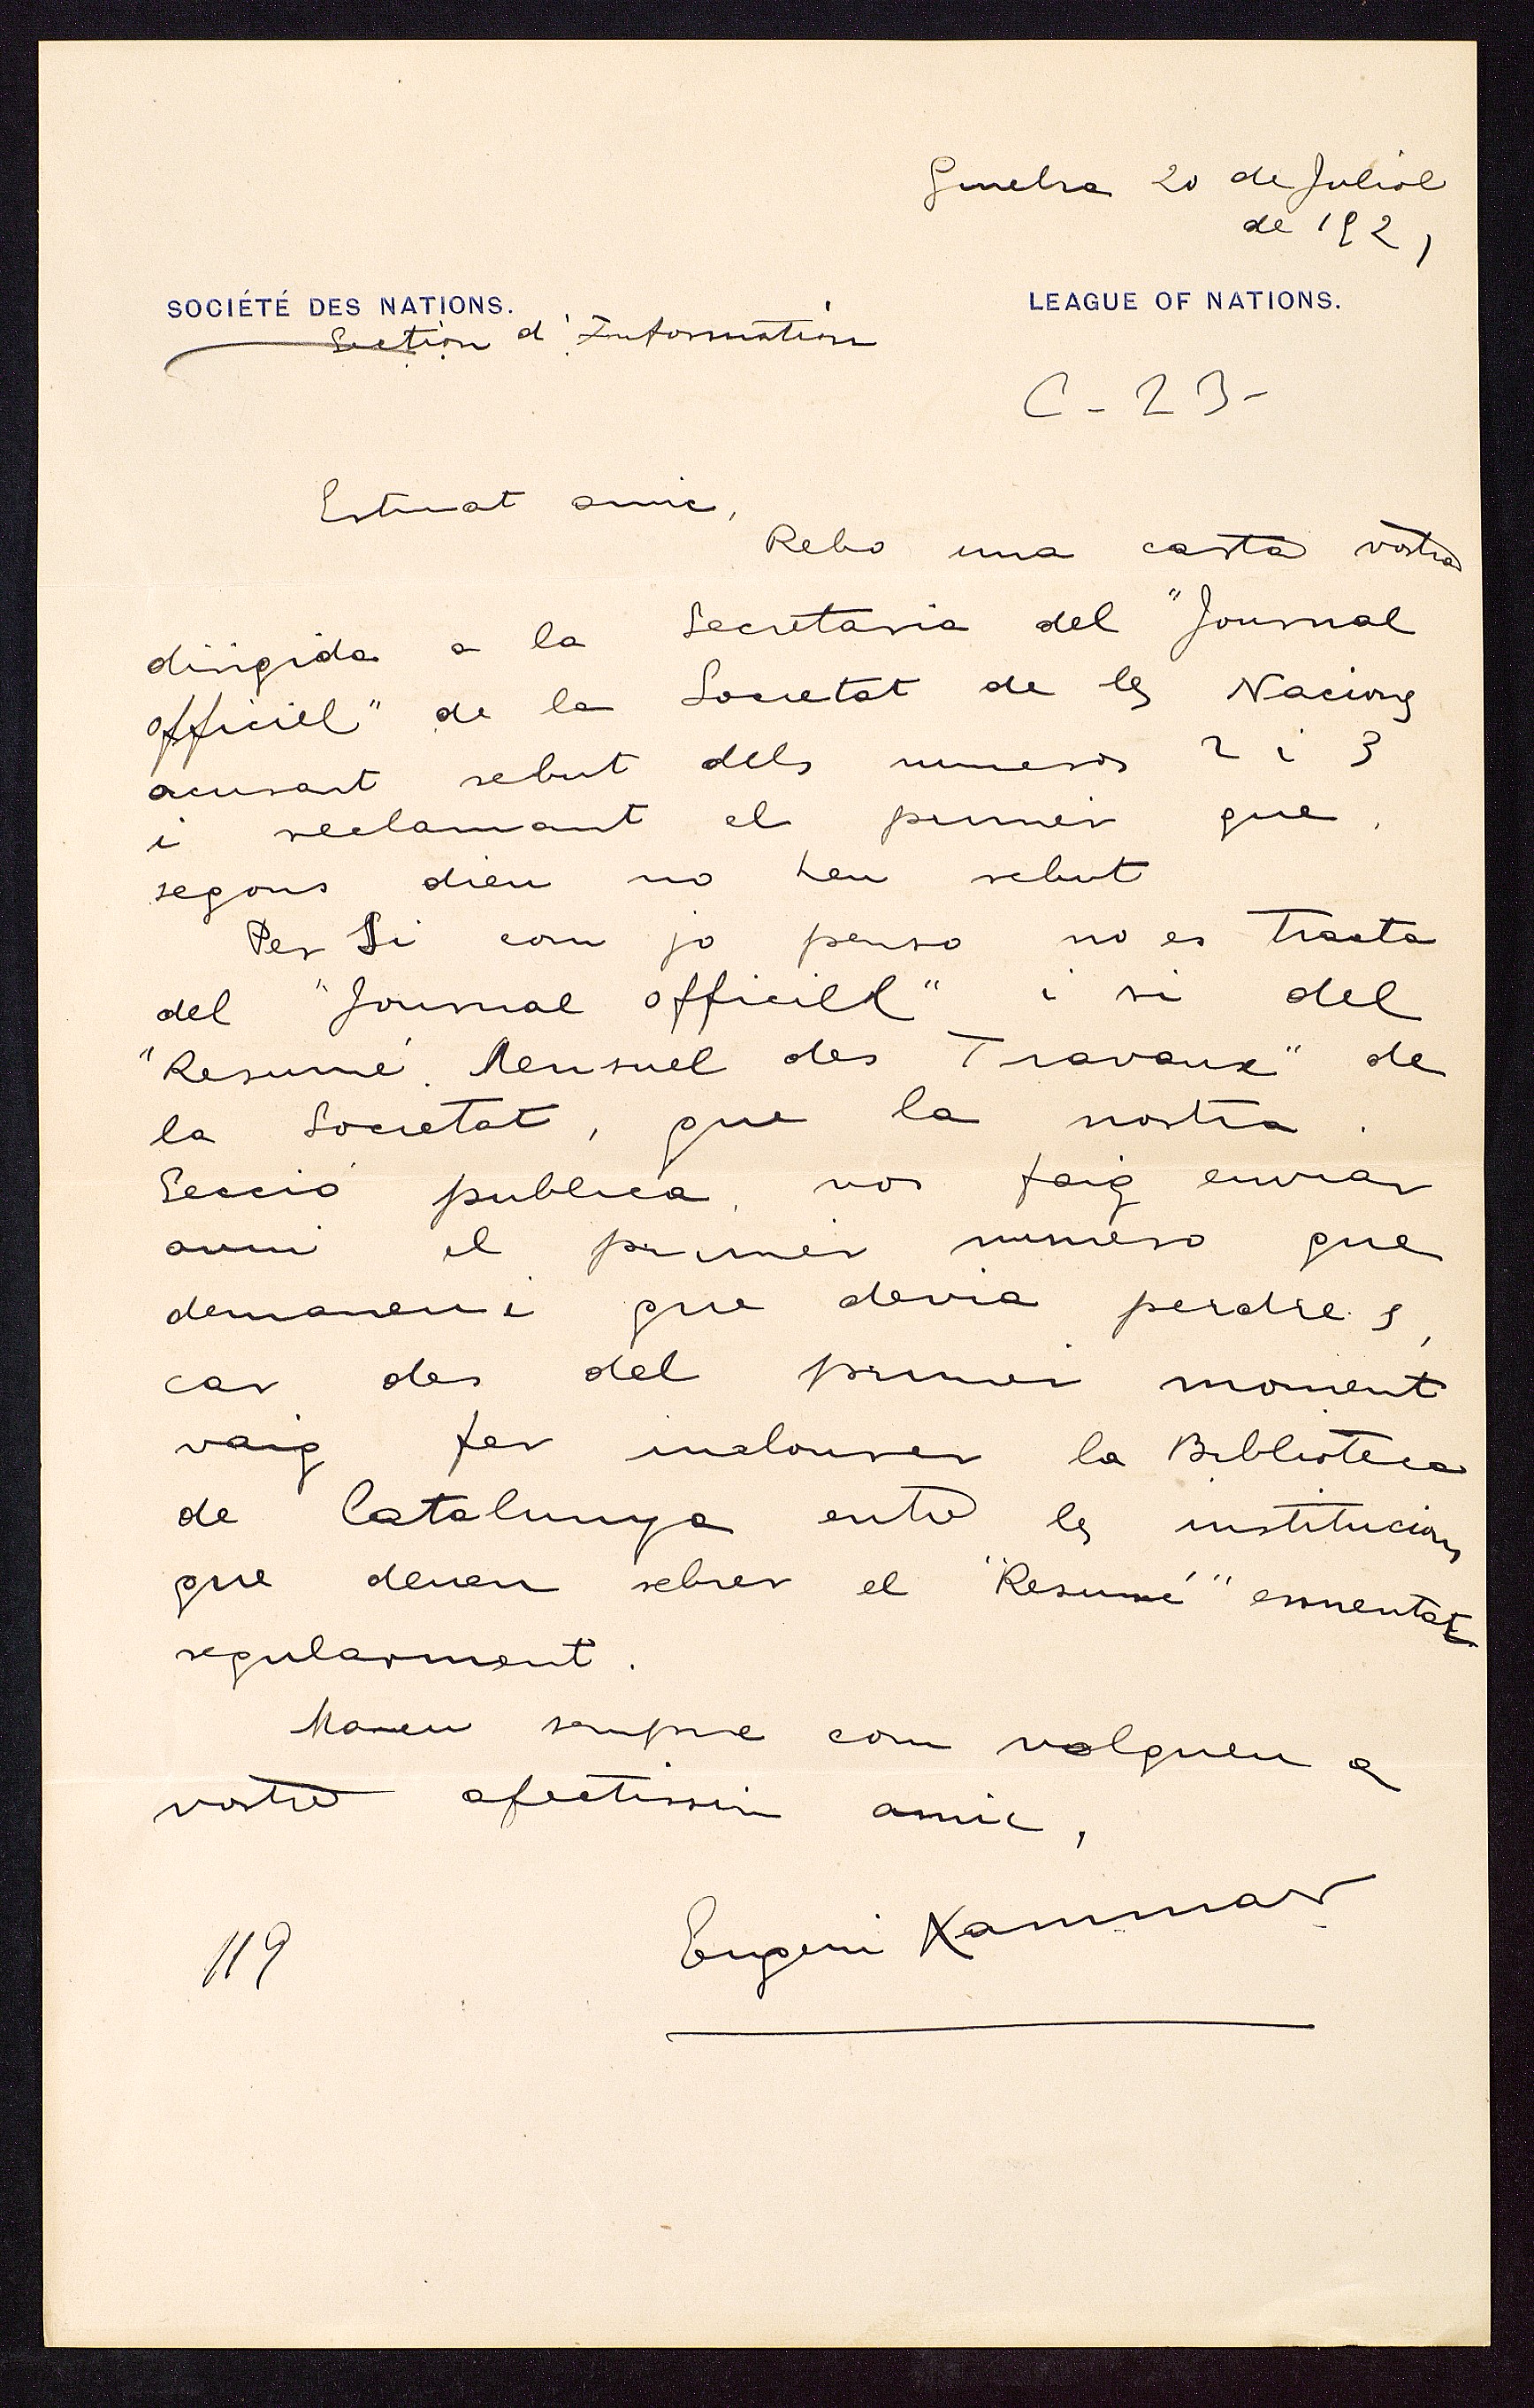 Ginebra 20 de Juliol
de 1921
SOCIÉTÉ DES NATIONS.
LEAGUE OF NATIONS.
Section d'Information
C-23-
Estimat amic,
Rebo una carta vostra
dirigida a la Secretaria del "Journal
Officiel" de la Societat de les Nacions
acusant rebut dels numeros 2 i 3
i reclamant el primer que,
segons dieu no heu rebut
Per Si com jo penso no es tracta
del "Journal Officiel" i si del
"Resumé Mensuel des Travaux" de
la Societat, que la nostra
Secció publica, vos faig enviar
avui el primer numero que
demaneu i que devia perdre's,
car des del primer moment
vaig fer incloure la Biblioteca
de Catalunya entre les institucions
que deuen rebrer el "Resumé" esmentat
regularment.
Maneu sempre com volgueu a
vostre afectissim amic,
Eugeni Xammar
119